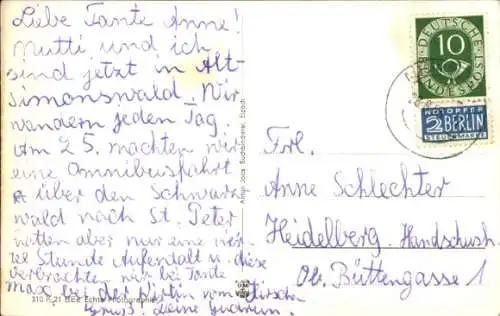 Liebe Tante Anne!
Mutti und ich
sind jetzt in Alt-
simonswald. Wir
wandern jeden Tag.
Am 25. machten wir
eine Omnibusfahrt
über den Schwarz
wald nach St. Peter
hatten aber nur eine vier
tel Stunde Aufenthalt u. diese
verbrachten wir bei Tante
Max bei der Wirtin vom Hirschen
Gruß! deine Gudrun.
310 R 21 Echte Photographie
Buchbinderei, Elzach
DEUTSCHE BUNDESPOST
10
NOTOPFER
2 BERLIN
STEUERMARKE
Frl.
Anne Schlechter
Heidelberg. Handschush.
Ob. Büttengasse 1